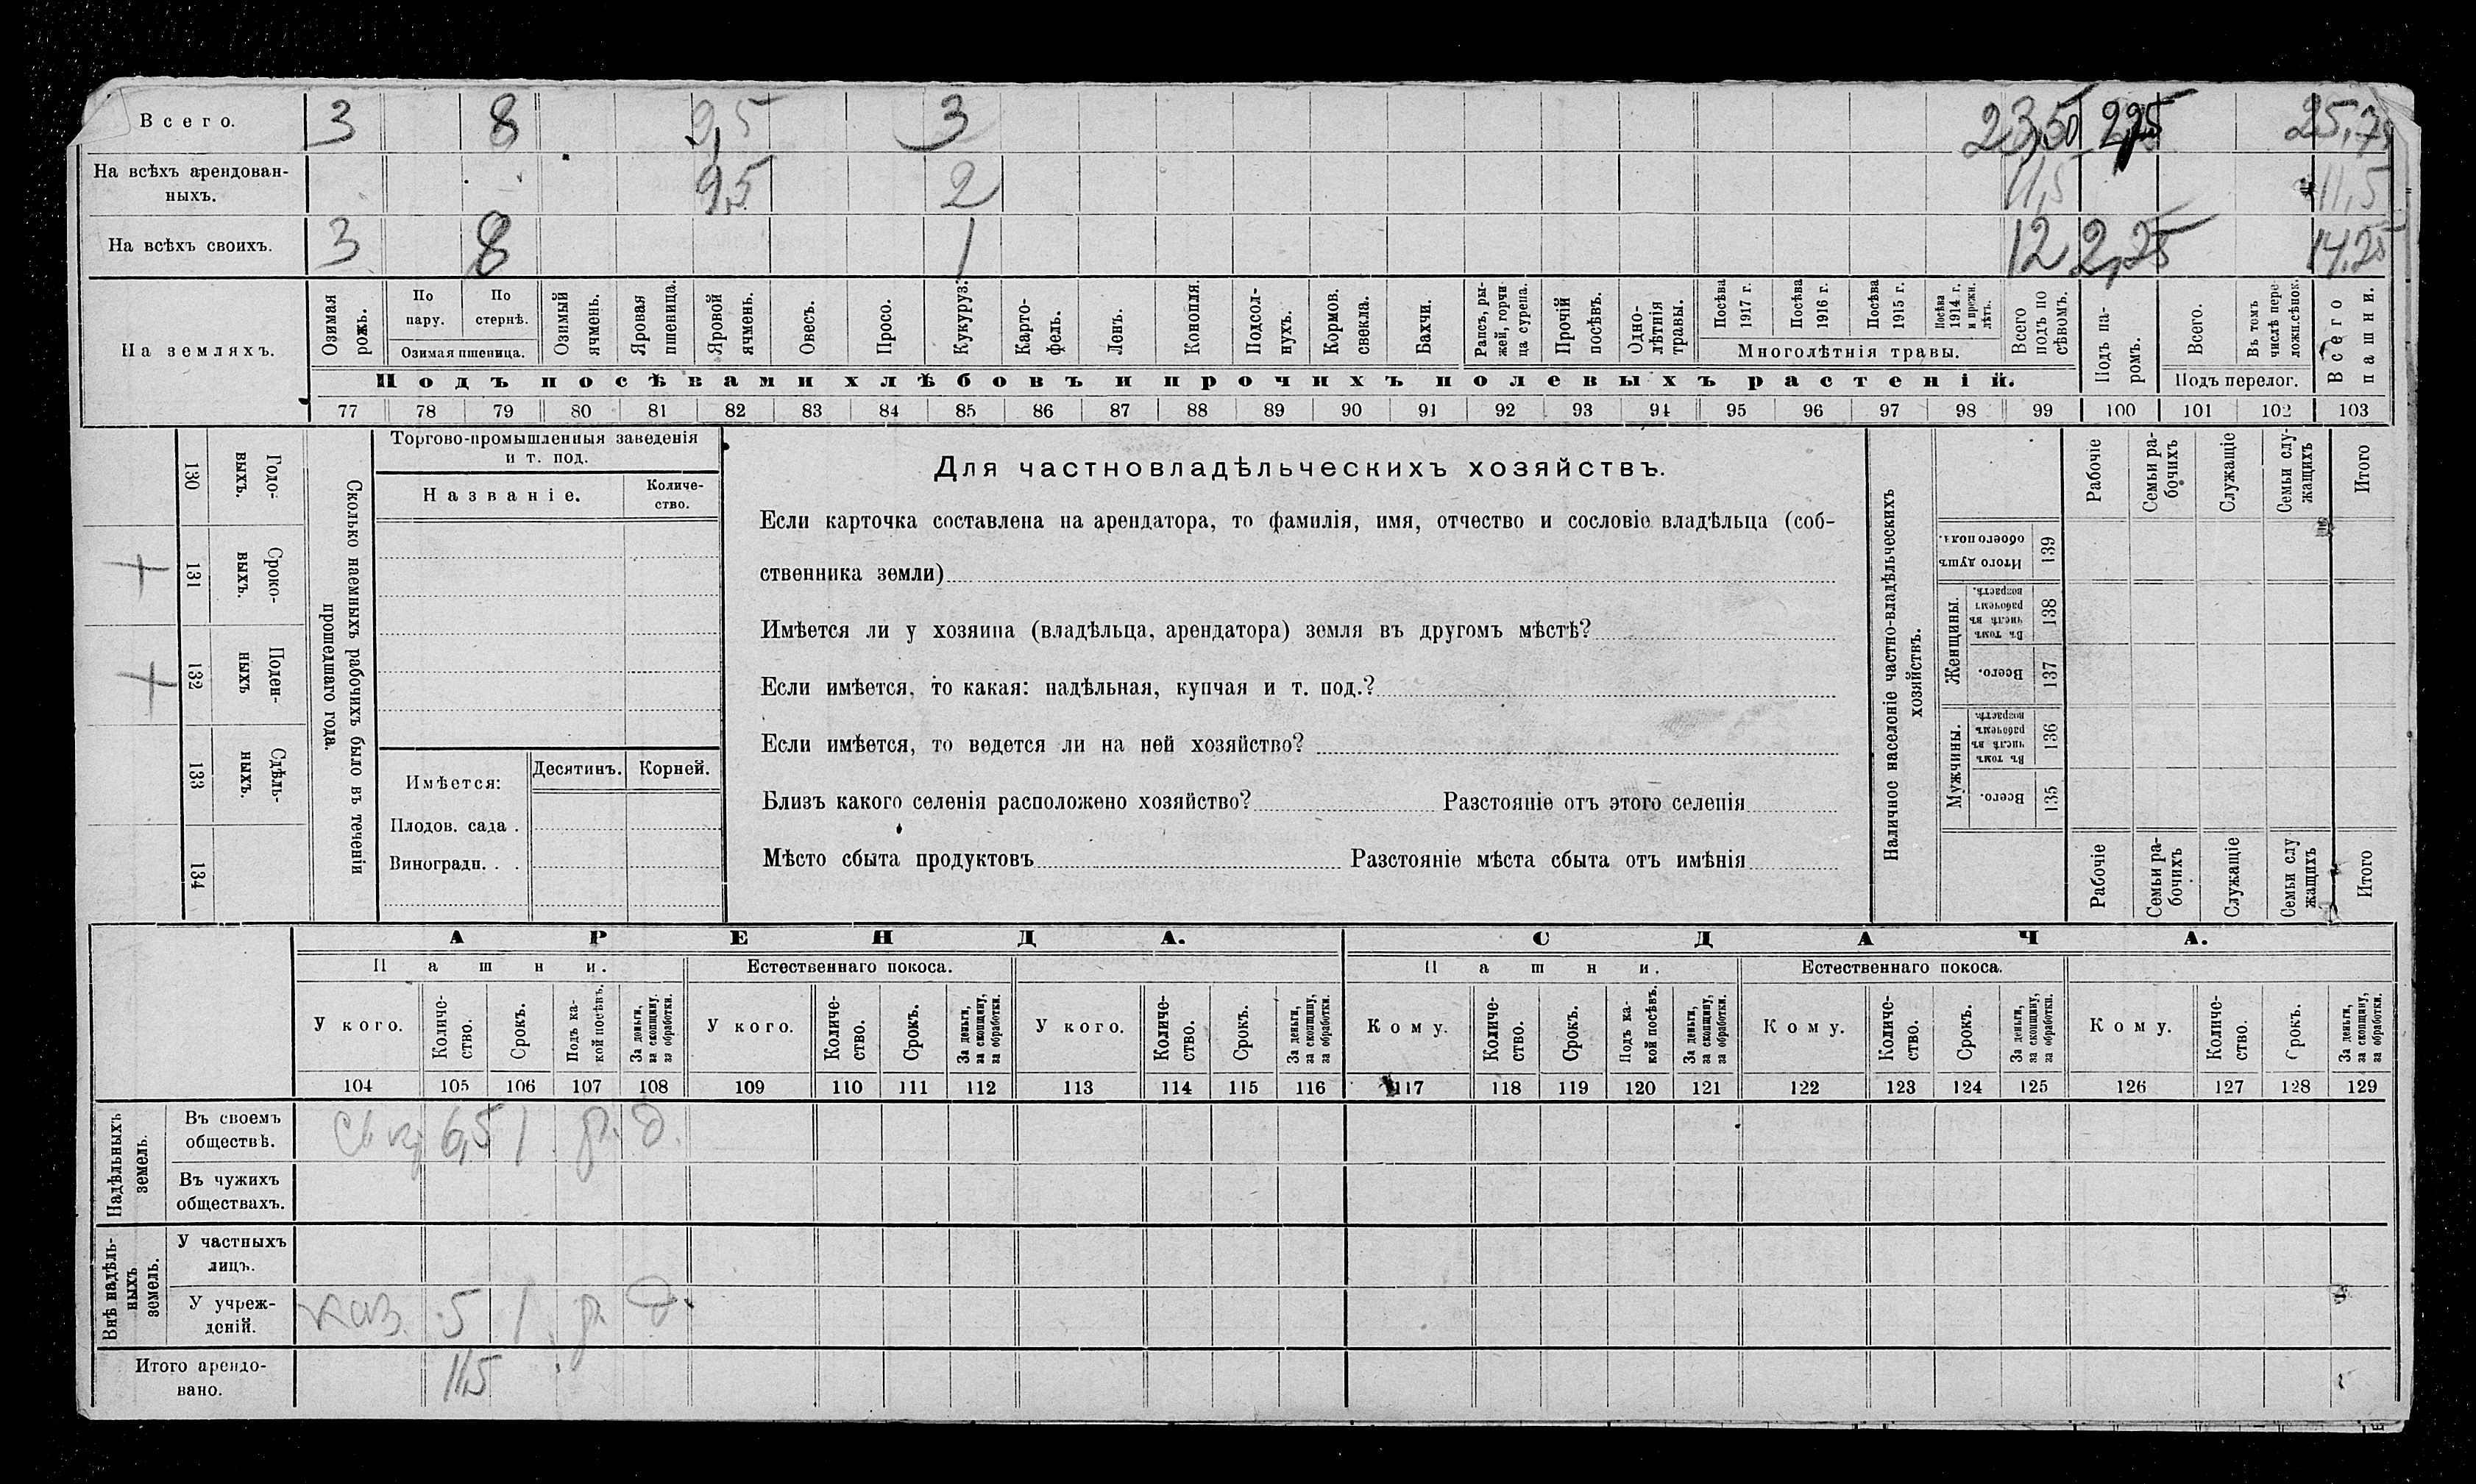 Всего. 3 8 9,5 3 23,50 2,25 25,75
На всѣхъ арендован-
ныхъ. 9,5 2 11,5 11,5
На всѣхъ своихъ. 3 8 1 12 2,25 14,25
На земляхъ.
Озимая рожь.
По пару.
По стернѣ.
Озимая пшеница.
Озимый ячмень.
Яровая пшеница.
Яровой ячмень.
Овесъ.
Просо.
Кукуруз.
Карто-
фель.
Ленъ.
Конопля.
Подсол-
нухъ.
Кормов. свекла.
Бахчи.
Рапсъ, ры-
жей, горчи
ца сурепа.
Прочій посѣвъ.
Одно-
лѣтнія
травы.
Посѣва 1917 г.
Посѣва 1916 г.
Посѣва 1915 г.
Посѣва 1914 г. и прежн. лѣтъ.
Многолѣтнія травы.
Всего подъ по
сѣвомъ.
Подъ па-
ромъ.
Всего.
Въ томъ числѣ пере
ложн.сѣнок.
Подъ перелог.
Всего пашни.
Подъ посѣвами хлѣбовъ и прочихъ полевыхъ растеній.
77 78 79 80 81 82 83 84 85 86 87 88 89 90 91 92 93 94 95 96 97 98 99 100 101 102 103
130 Годо-
выхъ.
131 Сроко-
выхъ.
132 Поден-
ныхъ
133 Сдѣль-
ныхъ.
134
Сколько наемныхъ рабочихъ было въ теченіи
прошедшаго года.
Торгово-промышленныя заведенія
и т. под.
Названіе. Количе-
ство.
Имѣется: Десятинъ. Корней.
Плодов. сада .
Виноградн. . .
Для частновладѣльческихъ хозяйствъ.
Если карточка составлена на арендатора, то фамилія, имя, отчество и сословіе владѣльца (соб-
ственника земли)
Имѣется ли у хозяина (владѣльца, арендатора) земля въ другомъ мѣстѣ?
Если имѣется, то какая: надѣльная, купчая и т. под.?
Если имѣется, то ведется ли на ней хозяйство?
Близъ какого селенія расположено хозяйство? Разстояніе отъ этого селенія
Мѣсто сбыта продуктовъ Разстояніе мѣста сбыта отъ имѣнія
Наличное населеніе частно-владѣльческихъ
хозяйствъ.
Рабочіе
Семьи ра-
бочихъ
Служащіе
Семьи слу-
жащихъ
Итого
Итого душъ
обоего пола. 139
Женщины.
Въ томъ числѣ въ рабочемъ возрастѣ. 138
Всего. 137
Мужчины.
Въ томъ числѣ въ рабочемъ возрастѣ. 136
Всего. 135
Рабочіе
Семьи ра-
бочихъ
Служащіе
Семьи слу
жащихъ
Итого
АРЕНДА. СДАЧА.
Пашни. Естественнаго покоса. Пашни. Естественнаго покоса.
У кого.
Количе-
ство.
Срокъ.
Подъ ка-
кой посѣвъ.
За деньги,
за скопщину,
за обработки.
У кого.
Количе-
ство.
Срокъ.
За деньги,
за скопщину,
за обработки.
У кого.
Количе-
ство.
Срокъ.
За деньги,
за скопщину,
за обработки.
Кому.
Количе-
ство.
Срокъ.
Подъ ка-
кой посѣвъ.
За деньги,
за скопщину,
за обработки.
Кому.
Количе-
ство.
Срокъ.
За деньги,
за скопщину,
за обработки.
Кому.
Количе-
ство.
Срокъ.
За деньги,
за скопщину,
за обработки.
104 105 106 107 108 109 110 111 112 113 114 115 116 117 118 119 120 121 122 123 124 125 126 127 128 129
Надѣльныхъ
земель.
Въ своемъ
обществѣ. 6,5 1 д.
Въ чужихъ
обществахъ.
Внѣ надѣль-
ныхъ
земель.
У частныхъ
лицъ.
У учреж-
деній. каз. 5 1 д.
Итого арендо-
вано. 11,5